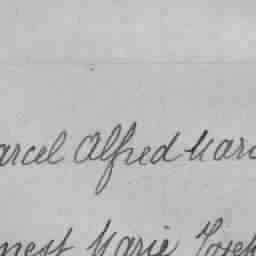 arcel Alfred Mari
nest Marie Joseph